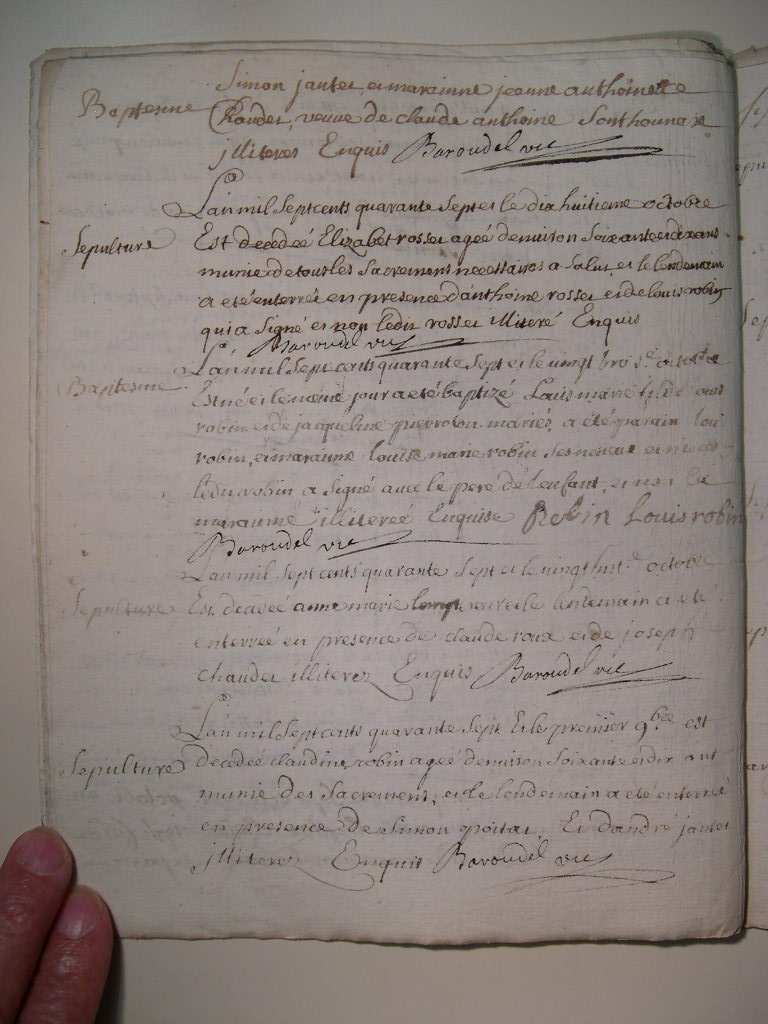 Simon jantet et marainne jeanne anthoinette
Baptesme Chaudet, veuve de claude anthoine
jlliteres Enquis Baroudel vic
L'an mil Septcents quarante Sept et le dix huitieme octobre
Sepulture Est decedeé Elizabet rosset ageé denviron Soixante et dix ans
munie de tous les Sacremens necessaires a Salut, et le lendemain
a eté enterreé en presence d'anthoine rosset et de louis robin
qui a Signé et non ledit rosset illiteré Enquis
Baroudel vic
L'an mil Sept cents quarante Sept et le vingt trois.e octobre
Baptesme Est né et le meme jour a eté baptizé Louis marie fil de
robin et de jaqueline pierroton mariés, a été parain loui
robin, et maraine louise marie robin Ses neveux et nieces
ledit robin a Signé avec le pere de l'enfant, et non la
maraine illitereé Enquise Robin Louis robin
Baroudel vic
L'an mil Sept cents quarante Sept et le vingt huit.e octobre
Sepulture Est decedeé anne marie et le lendemain a eté
enterreé en presence de claude roux et de joseph
chaudet illiterez Enquis Baroudel vic
L'an mil Sept cents quarante Sept Et le premier 9bre est
Sepulture decedeé claudine robin ageé denviron Soixante et dix ant
munie des Sacremens, et le lendemain a eté enterreé
en presence de Simon poitat, Et d'andré jantet
jlliterez Enquis Baroudel vic